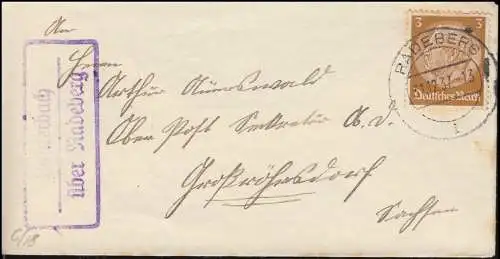 An
Herrn
Arthur
Ober Post Sekretär A. D.
Großröhrsdorf
Sachsen
über Radeberg
RADEBERG
3 3
Deutsches Reich
6/18